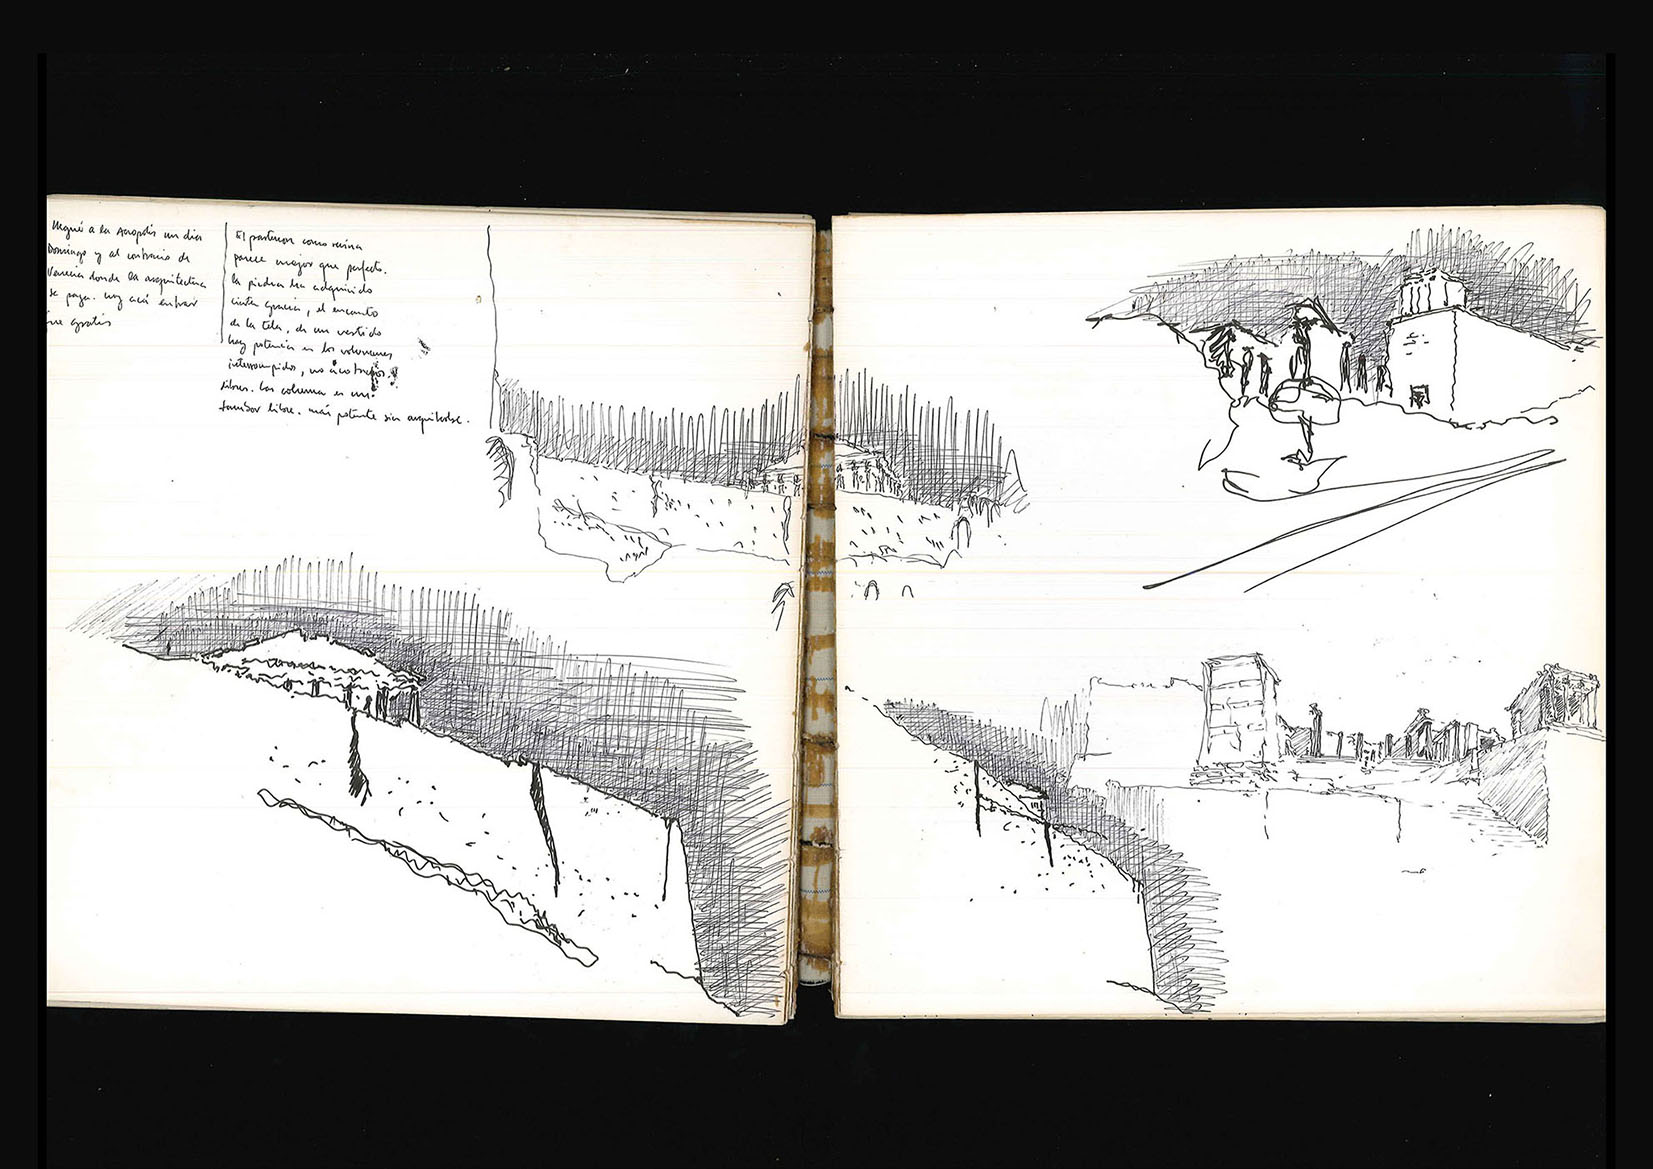 llegué a la Acropolis un dia
Domingo y al contrario de
Venecia donde la arquitectura
se paga. hoy acá entrar
fue gratis
El partenon como ruina
parece mejor que perfecto.
la piedra ha adquirido
cierta gracia, el encanto
de la tela, de un vestido
hay potencia en los volumenes
interrumpidos, no
libres. Las columna es un
tambor libre. más potente sin arquitrabe.